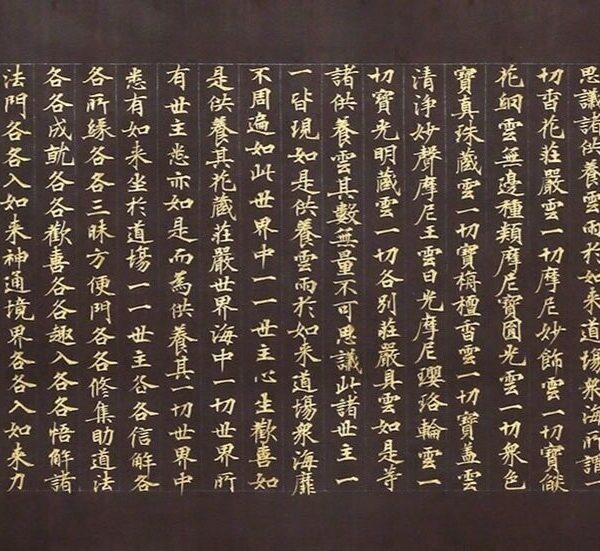 思議諸供養雲雨於如来道場衆海所謂一
切香花莊嚴雲一切摩尼妙飾雲一切寶燄
花網雲無邊種類摩尼寶圓光雲一切衆色
寶真珠藏雲一切寶栴檀香雲一切寶盖雲
清淨妙聲摩尼王雲日光摩尼瓔珞輪雲一
切寶光明藏雲一切各別莊嚴具雲如是等
諸供養雲其數無量不可思議此諸世主一
一皆現如是供養雲雨於如来道場衆海靡
不周遍如此世界中一一世主心生歡喜如
是供養其花藏莊嚴世界海中一切世界所
有世主悉亦如是而為供養其一切世界中
悉有如来坐於道場一一世主各各信解各
各所緣各各三昧方便門各各修集助道法
各各成就各各歡喜各各趣入各各悟解諸
法門各各入如来神通境界各各入如来力